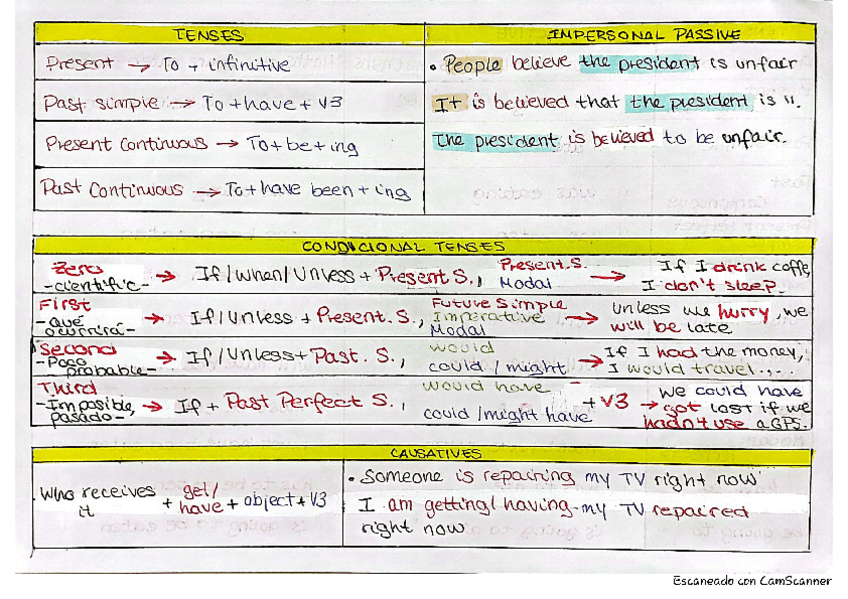 TENSES
Present → To + infinitive
Past simple → To + have + V3
Present continuous → To + be + ing
Past Continuous → To + have been + ing
IMPERSONAL PASSIVE
• People believe the president is unfair
It is believed that the president is ".
The president is believed to be unfair.
CONDICIONAL TENSES
Zero
-científic-
→ If / when / Unless + Present S., Present. S. Modal → If I drink coffe, I don't sleep.
First
-qué ocurrirá-
→ If / Unless + Present. S., Future Simple Imperative Modal → unless we hurry, we will be late
Second
-Poco probable-
→ If / Unless + Past. S., would could / might → If I had the money, I would travel...
Third
-Imposible, pasado-
→ If + Past Perfect S., would have could / might have + V3 → we could have got lost if we hadn't use a GPS.
CAUSATIVES
who receives it + get / have + object + V3
• Someone is repairing my TV right now
I am getting / having my TV repaired
right now
Escaneado con CamScanner